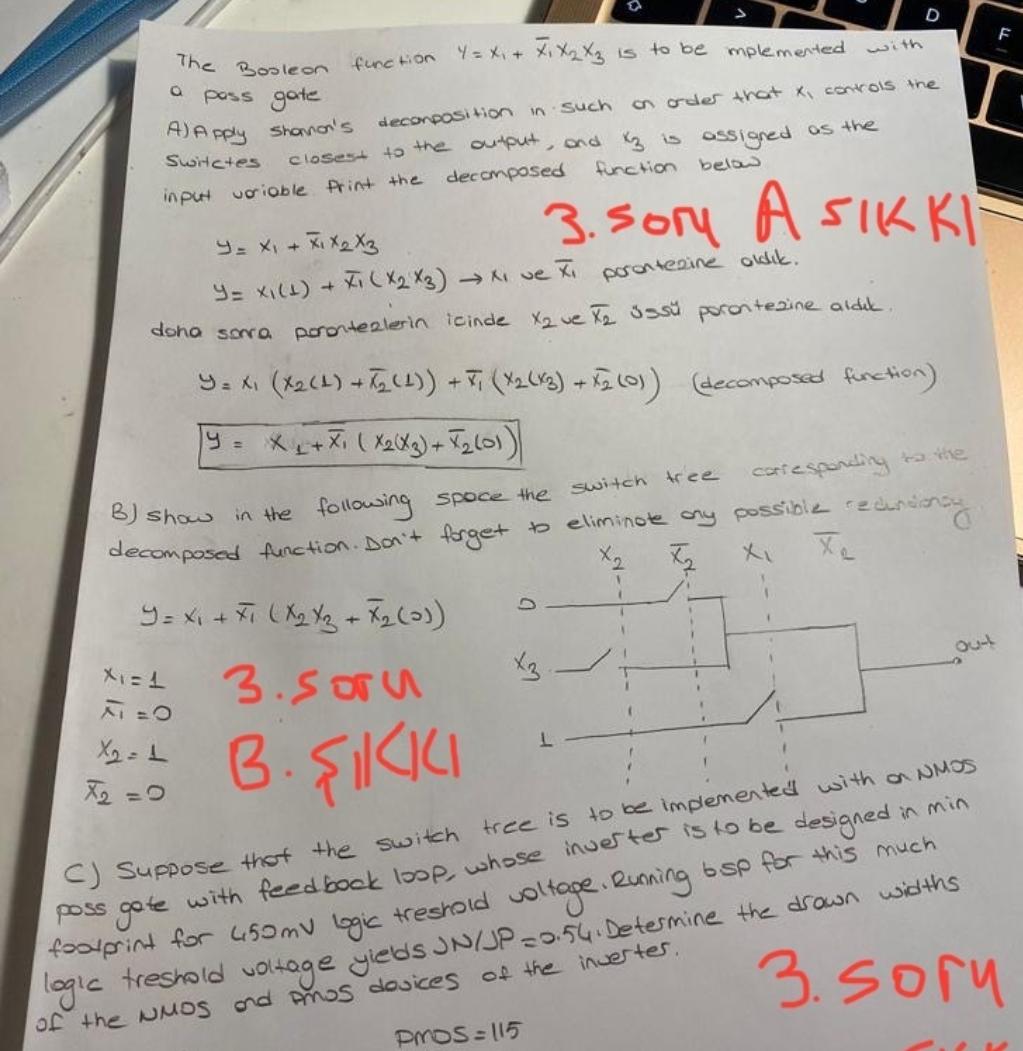 The Boolean function Y = x₁ + x̄₁x₂x₃ is to be mplemented with
a pass gate
A) Apply Shannon's decomposition in such on order that x₁ controls the
Switctes closest to the output, and x₃ is assigned as the
input variable. Print the decomposed function below
3. soru A SIKKI
y = x₁ + x̄₁x₂x₃
y = x₁(1) + x̄₁(x₂x₃) → x₁ ve x̄₁ parantezine aldık.
daha sonra parantezlerin icinde x₂ ve x̄₂ üssü parantezine aldık.
y = x₁ (x₂(1) + x̄₂(1)) + x̄₁ (x₂(x₃) + x̄₂(0)) (decomposed function)
y = x₁ + x̄₁ (x₂(x₃) + x̄₂(0))
B) show in the following space the switch tree corresponding to the
decomposed function. Don't forget to eliminate any possible redundancy
x₂ x̄₂ x₁ x̄₂
y = x₁ + x̄₁ (x₂x₃ + x̄₂(0))
0
x₃
1
out
x₁ = 1
x̄₁ = 0
x₂ = 1
x̄₂ = 0
3. soru
B. ŞIKKI
C) Suppose that the switch tree is to be implemented with an NMOS
pass gate with feedback loop, whose inverter is to be designed in min
footprint for 450mV logic treshold voltage. Running bsp for this much
logic treshold voltage yields JN/JP = 0.54. Determine the drawn widths
of the NMOS and PMOS devices of the inverter.
3. soru
PMOS = 115